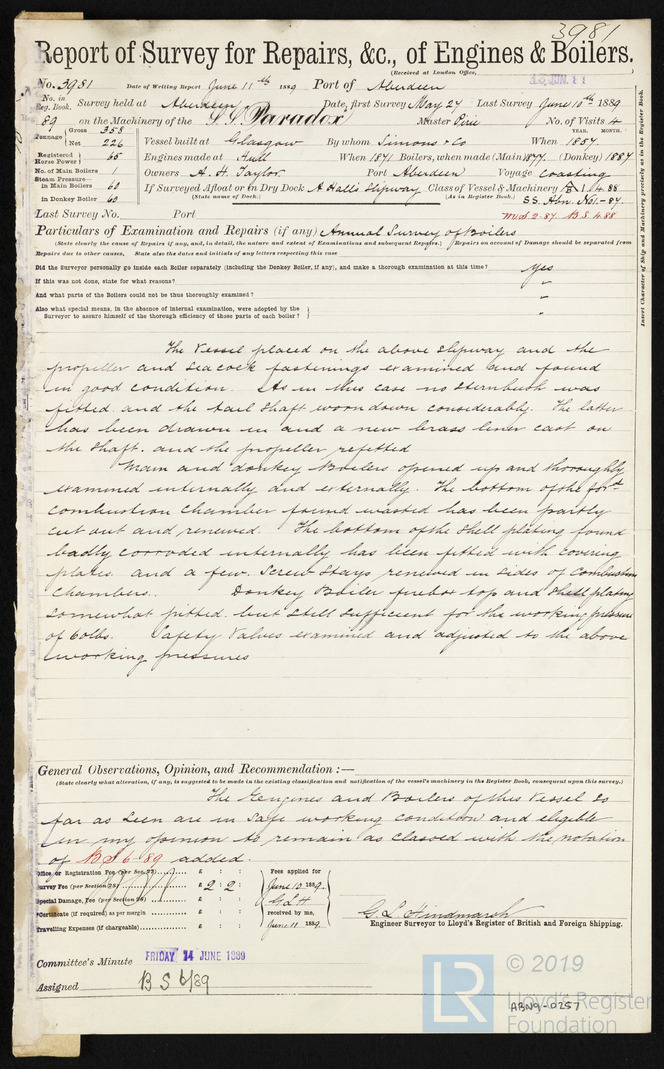 3981
Report of Survey for Repairs, &c., of Engines & Boilers.
(Received at London Office,
13 JUN. 11
No. 3981 Date of Writing Report June 11th 1889 Port of Aberdeen
No. in Reg. Book. Survey held at Aberdeen Date, first Survey May 27 Last Survey June 10th 1889
89 on the Machinery of the S.S. Paradox Master Pirie No. of Visits 4
Tonnage Gross 358
Net 226
Vessel built at Glasgow By whom Simons & Co When YEAR. MONTH. 1857
Registered Horse Power 65
Engines made at Hull When 1871 Boilers, when made (Main) 1877 (Donkey) 1887
No. of Main Boilers 1
Owners A. H. Taylor Port Aberdeen Voyage Coasting
Steam Pressure in Main Boilers 60
If Surveyed Afloat or in Dry Dock A Hall's Slipway Class of Vessel & Machinery A 1 4.88
(State name of Dock.) (As in Register Book.)
in Donkey Boiler 60
SS. Abn. No1-87.
Last Survey No. Port
MS 2.87. BS 4.88
Particulars of Examination and Repairs (if any) Annual Survey of Boilers
(State clearly the cause of Repairs if any, and, in detail, the nature and extent of Examinations and subsequent Repairs.) Repairs on account of Damage should be separated from
Repairs due to other causes. State also the dates and initials of any letters respecting this case
Did the Surveyor personally go inside each Boiler separately (including the Donkey Boiler, if any), and make a thorough examination at this time? Yes
If this was not done, state for what reasons? "
And what parts of the Boilers could not be thus thoroughly examined? "
Also what special means, in the absence of internal examination, were adopted by the
Surveyor to assure himself of the thorough efficiency of those parts of each boiler? "
The Vessel placed on the above slipway and the
propeller and Seacock fastenings examined and found
in good condition. As in this case no Sternbush was
fitted and the tail shaft worn down considerably. The latter
has been drawn in and a new brass liner cast on
the shaft, and the propeller refitted
Main and donkey Boilers opened up and thoroughly
examined internally and externally. The bottom of the for'd
combustion chamber found wasted has been partly
cut out and renewed. The bottom of the shell plating found
badly corroded internally has been fitted with covering
plates and a few screw stays renewed in sides of combustion
chambers. Donkey Boiler firebox top and shell plating
somewhat pitted but still sufficient for the working pressure
of 60lbs. Safety Valves examined and adjusted to the above
working pressures
General Observations, Opinion, and Recommendation :—
(State clearly what alteration, if any, is suggested to be made in the existing classification and notification of the vessel's machinery in the Register Book, consequent upon this survey.)
The Engines and Boilers of this Vessel so
far as seen are in safe working condition and eligible
in my opinion to remain as classed with the notation
of BS 6-89 added.
Office or Registration Fee (per Sec. 27) £ : :
Survey Fee (per Section 28) £ 2 : 2 :
Special Damage, Fee (per Section 28) £ : :
Certificate (if required) as per margin £ : :
Travelling Expenses (if chargeable) £ : :
Fees applied for
June 10 1889
G L H
received by me,
June 11 1889
G. L. Hindmarsh
Engineer Surveyor to Lloyd's Register of British and Foreign Shipping.
Committee's Minute FRIDAY 14 JUNE 1889
Assigned B S 6/89
ABN9-0257
Insert Character of Ship and Machinery precisely as in the Register Book.
LR
© 2019
Lloyd's Register
Foundation